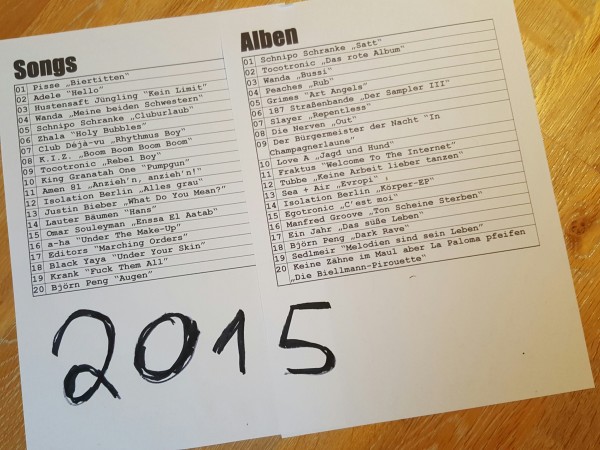 Songs
01 Pisse „Biertitten“
02 Adele "Hello"
03 Hustensaft Jüngling "Kein Limit"
04 Wanda „Meine beiden Schwestern“
05 Schnipo Schranke „Cluburlaub“
06 Zhala "Holy Bubbles"
07 Club Déjà-vu „Rhythmus Boy“
08 K.I.Z. „Boom Boom Boom Boom“
09 Tocotronic „Rebel Boy“
10 King Granatah One "Pumpgun"
11 Amen 81 „Anzieh'n, anzieh'n!“
12 Isolation Berlin „Alles grau“
13 Justin Bieber „What Do You Mean?“
14 Lauter Bäumen "Hans"
15 Omar Souleyman „Enssa El Aatab“
16 a-ha "Under The Make-Up"
17 Editors "Marching Orders"
18 Black Yaya "Under Your Skin"
19 Krank "Fuck Them All"
20 Björn Peng "Augen"
Alben
01 Schnipo Schranke „Satt“
02 Tocotronic „Das rote Album“
03 Wanda „Bussi“
04 Peaches „Rub“
05 Grimes "Art Angels"
06 187 Straßenbande „Der Sampler III“
07 Slayer „Repentless“
08 Die Nerven „Out“
09 Der Bürgermeister der Nacht "In
Champagnerlaune"
10 Love A „Jagd und Hund“
11 Fraktus "Welcome To The Internet"
12 Tubbe „Keine Arbeit lieber tanzen“
13 Sea + Air „Evropi„
14 Isolation Berlin „Körper-EP“
15 Egotronic „C'est moi“
16 Manfred Groove „Ton Scheine Sterben“
17 Ein Jahr „Das süße Leben“
18 Björn Peng „Dark Rave“
19 Sedlmeir "Melodien sind sein Leben"
20 Keine Zähne im Maul aber La Paloma pfeifen
„Die Biellmann-Pirouette“
2015